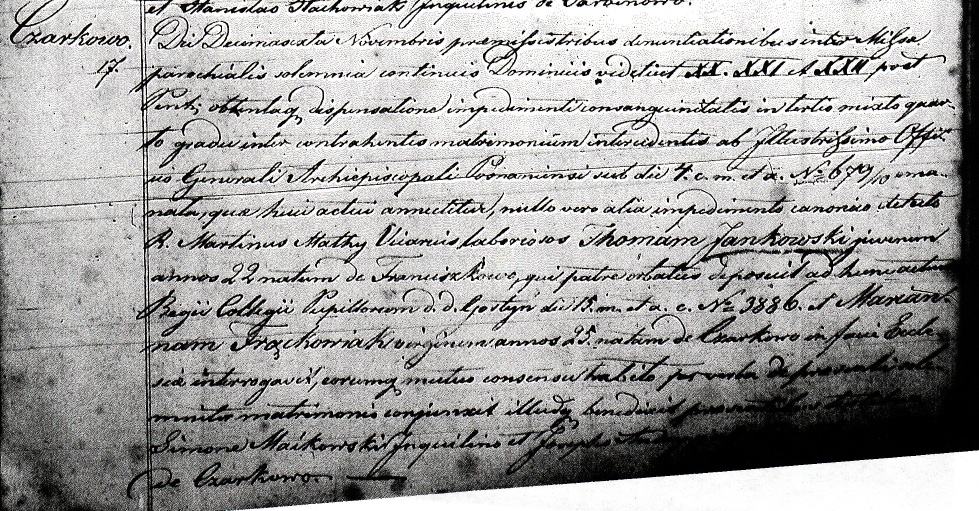 et Stanislao Stachowiak Inquilinis de Darbinowo.
Czarkowo. Die Decimasexta Novembris præmissis tribus denuntiationibus inter Missa
17. parochialis solemnia continuis Dominicis videlicet XX. XXI et XXII post
Pent: obtentaq dispensatione impedimenti consanguinitatis in tertio mixto quar-
to gradu inter contrahentes matrimonium intercedentis ab Illustrissimo Offici
uo Generali Archiepiscopali Posnaniensi sub die 4. c. m. et a. No 679/10 ema-
nata, quæ huic actui annectitur, nullo vero alio impedimento canonico detecto
R. Martinus Mathy Vicarius, laboriosos Thomam Jankowski juvenem
annos 22 natum de Franciszkowo, qui patre orbatus deposuit ad hunc actum
Regii Collegii Pupillorum d. d. Gostyń die 15. m. et a. c. No 3886. et Marian-
nam Frąchowiak virginem annos 25. natam de Czarkowo in facie Eccle-
siæ interrogavit, eorumq mutuo consensu habito per verba de præsenti
matrimonio conjunxit illudq benedixit præsentibus testibus
Simone Maikowski Inquilino et Josepho
de Czarkowo.